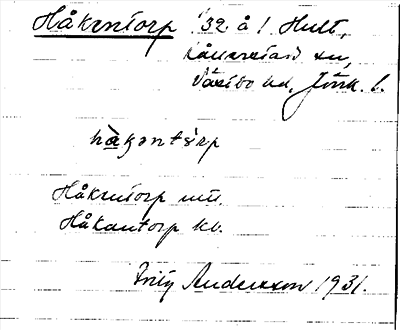 Håkentorp 1/32 å 1 Hult,
Låkaretard sn,
Västbo hd, Jönk. l.
håkontòrp
Håkentorp mtl.
Håkantorp kb.
Fritz Andersson 1931.